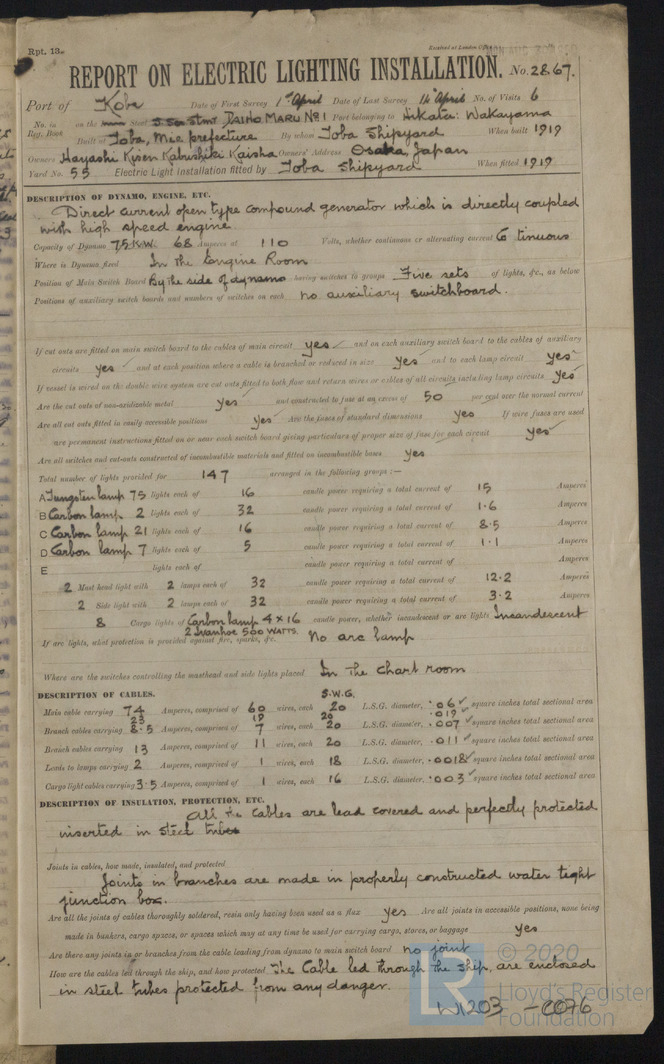 Rpt. 13.
Received at London Office
REPORT ON ELECTRIC LIGHTING INSTALLATION. No. 2867.
Port of Kobe Date of First Survey 1st April Date of Last Survey 14th April No. of Visits 6
No. in Reg. Book on the Steel S. Str "DAIHO MARU No 1 Port belonging to Hikata: Wakayama
Built at Toba, Mie prefecture By whom Toba Shipyard When built 1919
Owners Hayashi Kisen Kabushiki Kaisha Owners' Address Osaka, Japan
Yard No. 55 Electric Light Installation fitted by Toba Shipyard When fitted 1919
DESCRIPTION OF DYNAMO, ENGINE, ETC.
Direct current open type compound generator which is directly coupled
with high speed engine
Capacity of Dynamo 7.5 K.W. 68 Amperes at 110 Volts, whether continuous or alternating current Continuous
Where is Dynamo fixed In the Engine Room
Position of Main Switch Board By the side of dynamo having switches to groups Five sets of lights, &c., as below
Positions of auxiliary switch boards and numbers of switches on each no auxiliary switchboard.
If cut outs are fitted on main switch board to the cables of main circuit yes and on each auxiliary switch board to the cables of auxiliary
circuits yes and at each position where a cable is branched or reduced in size yes and to each lamp circuit yes
If vessel is wired on the double wire system are cut outs fitted to both flow and return wires or cables of all circuits including lamp circuits yes
Are the cut outs of non-oxidizable metal yes and constructed to fuse at an excess of 50 per cent over the normal current
Are all cut outs fitted in easily accessible positions yes Are the fuses of standard dimensions yes If wire fuses are used
are permanent instructions fitted on or near each switch board giving particulars of proper size of fuse for each circuit yes
Are all switches and cut-outs constructed of incombustible materials and fitted on incombustible bases yes
Total number of lights provided for 147 arranged in the following groups :—
A Tungsten lamp 75 lights each of 16 candle power requiring a total current of 15 Amperes
B Carbon lamp 2 lights each of 32 candle power requiring a total current of 1.6 Amperes
C Carbon lamp 21 lights each of 16 candle power requiring a total current of 8.5 Amperes
D Carbon lamp 7 lights each of 5 candle power requiring a total current of 1.1 Amperes
E lights each of candle power requiring a total current of Amperes
2 Mast head light with 2 lamps each of 32 candle power requiring a total current of 12.2 Amperes
2 Side light with 2 lamps each of 32 candle power requiring a total current of 3.2 Amperes
8 Cargo lights of Carbon lamp 4 x 16 candle power, whether incandescent or arc lights Incandescent
2 Ivanhoe 500 WATTS.
If arc lights, what protection is provided against fire, sparks, &c. No arc lamp
Where are the switches controlling the masthead and side lights placed In the Chart room
DESCRIPTION OF CABLES. S.W.G.
Main cable carrying 74 Amperes, comprised of 60 wires, each 20 L.S.G. diameter, .06 square inches total sectional area
23 19 20 .019
Branch cables carrying 8.5 Amperes, comprised of 7 wires, each 20 L.S.G. diameter, .007 square inches total sectional area
Branch cables carrying 13 Amperes, comprised of 11 wires, each 20 L.S.G. diameter, .011 square inches total sectional area
Leads to lamps carrying 2 Amperes, comprised of 1 wires, each 18 L.S.G. diameter, .0018 square inches total sectional area
Cargo light cables carrying 3.5 Amperes, comprised of 1 wires, each 16 L.S.G. diameter, .003 square inches total sectional area
DESCRIPTION OF INSULATION, PROTECTION, ETC.
All the Cables are lead covered and perfectly protected
inserted in steel tubes
Joints in cables, how made, insulated, and protected
Joints in branches are made in properly constructed water tight
junction box.
Are all the joints of cables thoroughly soldered, resin only having been used as a flux yes Are all joints in accessible positions, none being
made in bunkers, cargo spaces, or spaces which may at any time be used for carrying cargo, stores, or baggage yes
Are there any joints in or branches from the cable leading from dynamo to main switch board no joint
How are the cables led through the ship, and how protected The Cable led through the ship, are enclosed
in steel tubes protected from any danger.
© 2020
LR Lloyd's Register
Foundation
W1203 - 0076